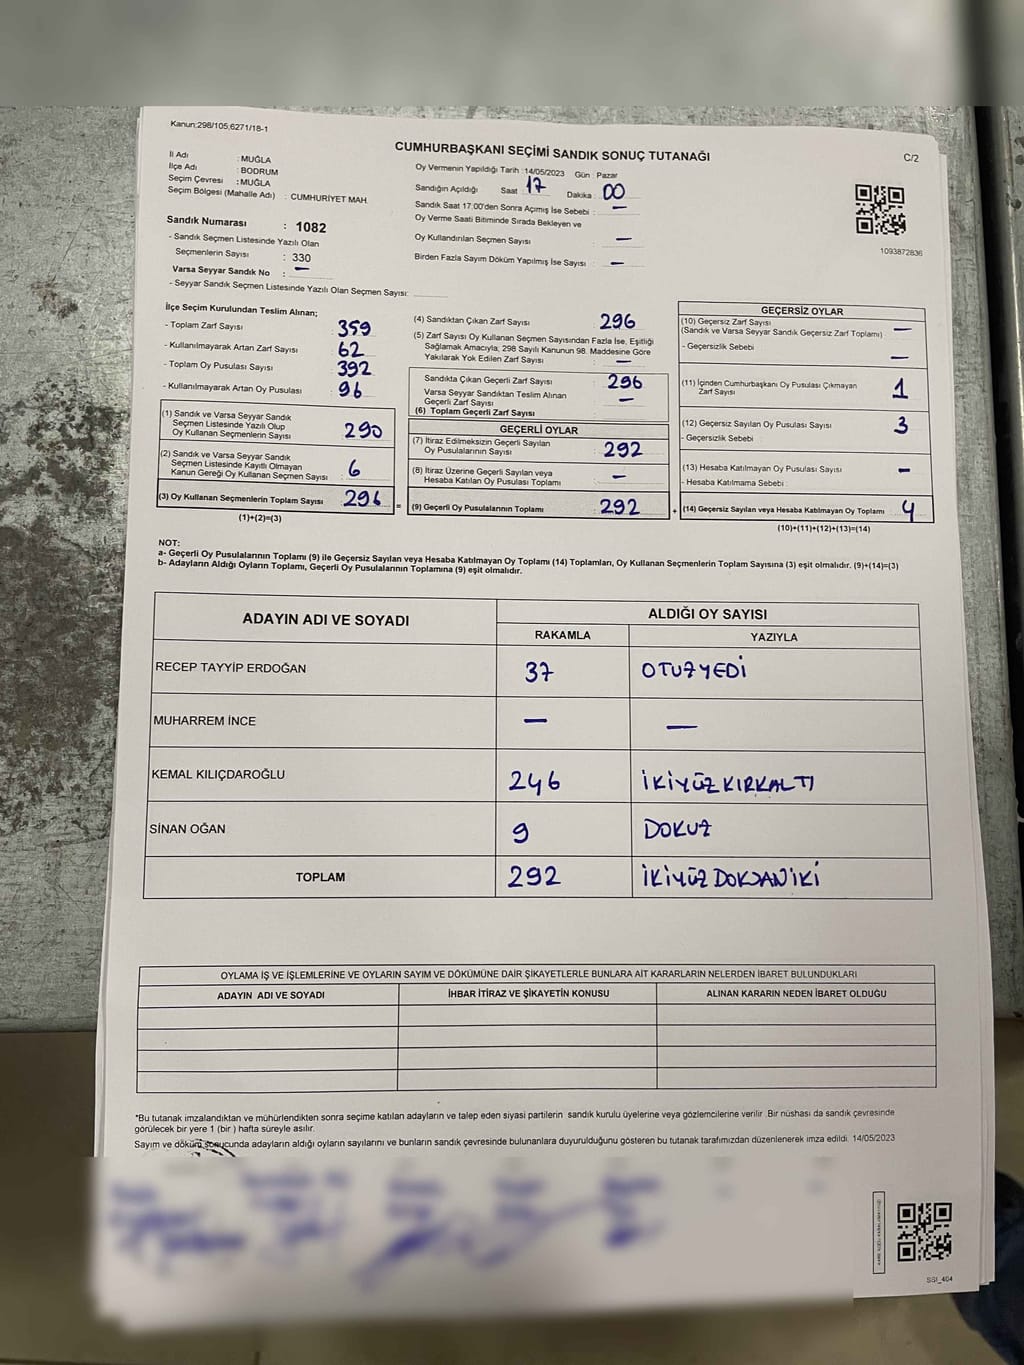 Kanun;298/105,6271/18-1
CUMHURBAŞKANI SEÇİMİ SANDIK SONUÇ TUTANAĞI
C/2
İl Adı : MUĞLA
İlçe Adı : BODRUM
Seçim Çevresi : MUĞLA
Seçim Bölgesi (Mahalle Adı) : CUMHURİYET MAH.
Sandık Numarası : 1082
- Sandık Seçmen Listesinde Yazılı Olan
Seçmenlerin Sayısı : 330
Varsa Seyyar Sandık No : —
- Seyyar Sandık Seçmen Listesinde Yazılı Olan Seçmen Sayısı:
Oy Vermenin Yapıldığı Tarih : 14/05/2023 Gün : Pazar
Sandığın Açıldığı Saat : 17 Dakika : 00
Sandık Saat 17:00'den Sonra Açımış İse Sebebi : —
Oy Verme Saati Bitiminde Sırada Bekleyen ve
Oy Kullandırılan Seçmen Sayısı : —
Birden Fazla Sayım Döküm Yapılmış İse Sayısı : —
1093872836
İlçe Seçim Kurulundan Teslim Alınan;
- Toplam Zarf Sayısı : 359
- Kullanılmayarak Artan Zarf Sayısı : 62
- Toplam Oy Pusulası Sayısı : 392
- Kullanılmayarak Artan Oy Pusulası : 96
(1) Sandık ve Varsa Seyyar Sandık
Seçmen Listesinde Yazılı Olup
Oy Kullanan Seçmenlerin Sayısı : 290
(2) Sandık ve Varsa Seyyar Sandık
Seçmen Listesinde Kayıtlı Olmayan
Kanun Gereği Oy Kullanan Seçmen Sayısı : 6
(3) Oy Kullanan Seçmenlerin Toplam Sayısı : 296
(1)+(2)=(3)
(4) Sandıktan Çıkan Zarf Sayısı : 296
(5) Zarf Sayısı Oy Kullanan Seçmen Sayısından Fazla İse, Eşitliği
Sağlamak Amacıyla, 298 Sayılı Kanunun 98. Maddesine Göre
Yakılarak Yok Edilen Zarf Sayısı : —
Sandıkta Çıkan Geçerli Zarf Sayısı : 296
Varsa Seyyar Sandıktan Teslim Alınan
Geçerli Zarf Sayısı : —
(6) Toplam Geçerli Zarf Sayısı
GEÇERLİ OYLAR
(7) İtiraz Edilmeksizin Geçerli Sayılan
Oy Pusulalarının Sayısı : 292
(8) İtiraz Üzerine Geçerli Sayılan veya
Hesaba Katılan Oy Pusulası Toplamı : —
= (9) Geçerli Oy Pusulalarının Toplamı : 292
GEÇERSİZ OYLAR
(10) Geçersiz Zarf Sayısı
(Sandık ve Varsa Seyyar Sandık Geçersiz Zarf Toplamı) : —
- Geçersizlik Sebebi : —
(11) İçinden Cumhurbaşkanı Oy Pusulası Çıkmayan
Zarf Sayısı : 1
(12) Geçersiz Sayılan Oy Pusulası Sayısı : 3
- Geçersizlik Sebebi :
(13) Hesaba Katılmayan Oy Pusulası Sayısı : —
- Hesaba Katılmama Sebebi :
+ (14) Geçersiz Sayılan veya Hesaba Katılmayan Oy Toplamı : 4
(10)+(11)+(12)+(13)=(14)
NOT:
a- Geçerli Oy Pusulalarının Toplamı (9) ile Geçersiz Sayılan veya Hesaba Katılmayan Oy Toplamı (14) Toplamları, Oy Kullanan Seçmenlerin Toplam Sayısına (3) eşit olmalıdır. (9)+(14)=(3)
b- Adayların Aldığı Oyların Toplamı, Geçerli Oy Pusulalarının Toplamına (9) eşit olmalıdır.
ADAYIN ADI VE SOYADI ALDIĞI OY SAYISI
RAKAMLA YAZIYLA
RECEP TAYYİP ERDOĞAN 37 OTUZYEDİ
MUHARREM İNCE — —
KEMAL KILIÇDAROĞLU 246 İKİYÜZKIRKALTI
SİNAN OĞAN 9 DOKUZ
TOPLAM 292 İKİYÜZDOKSANİKİ
OYLAMA İŞ VE İŞLEMLERİNE VE OYLARIN SAYIM VE DÖKÜMÜNE DAİR ŞİKAYETLERLE BUNLARA AİT KARARLARIN NELERDEN İBARET BULUNDUKLARI
ADAYIN ADI VE SOYADI İHBAR İTİRAZ VE ŞİKAYETİN KONUSU ALINAN KARARIN NEDEN İBARET OLDUĞU
*Bu tutanak imzalandıktan ve mühürlendikten sonra seçime katılan adayların ve talep eden siyasi partilerin sandık kurulu üyelerine veya gözlemcilerine verilir. Bir nüshası da sandık çevresinde
görülecek bir yere 1 (bir ) hafta süreyle asılır.
Sayım ve döküm sonucunda adayların aldığı oyların sayılarını ve bunların sandık çevresinde bulunanlara duyurulduğunu gösteren bu tutanak tarafımızdan düzenlenerek imza edildi. 14/05/2023
SGI_404